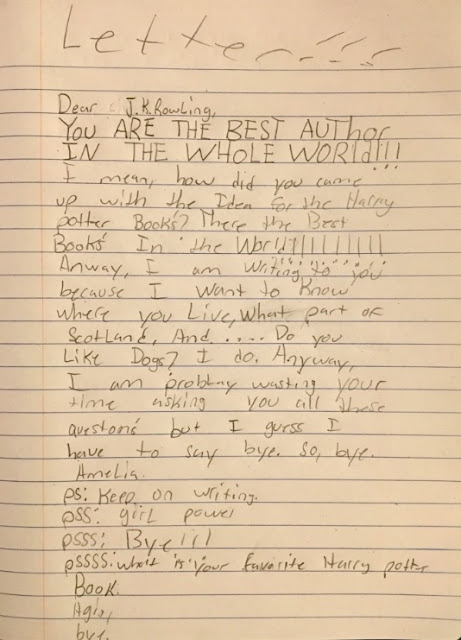 Letter!!!
Dear J.K.Rowling,
YOU ARE THE BEST AUTHOR
IN THE WHOLE WORld!!!
I mean, how did you came
up with the Idea for the Harry
potter Books? There the Best
Books In the World!!!!!!!!!
Anway, I am writing to you
because I want to Know
where you Live, What part of
Scotland, And..... Do you
Like Dogs? I do. Anyway,
I am probbay wasting your
time asking you all these
questons but I guess I
have to say bye. So, bye.
Amelia.
ps: Keep on writing.
pss: girl power
psss: Bye!!!
pssss: what is your favorite Harry potter
Book.
Agin,
bye.